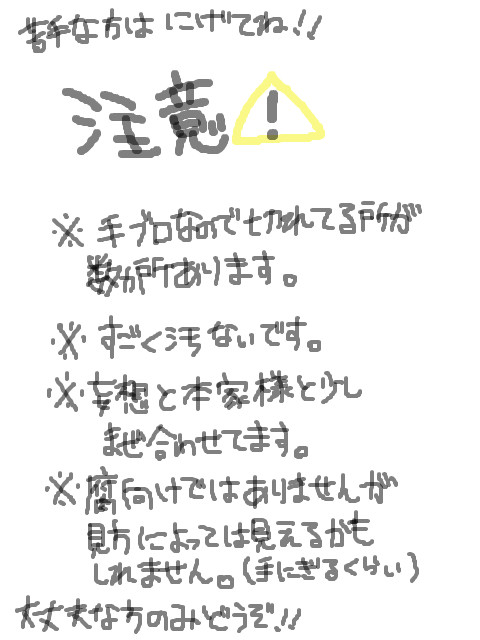 苦手な方は にげてね!!
注意!
※ 手ブロなので切れてる所が
数か所あります。
※ すごく汚ないです。
※ 妄想と本家様と少し
まぜ合わせてます。
※ 腐向けではありませんが
見方によっては見えるかも
しれません。(手にぎるくらい)
大丈夫な方のみどうぞ!!